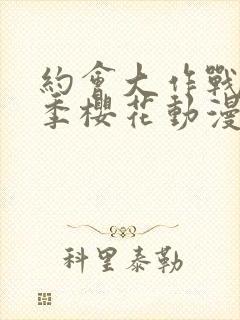 約會大作戰
季櫻花動漫
科里泰勒